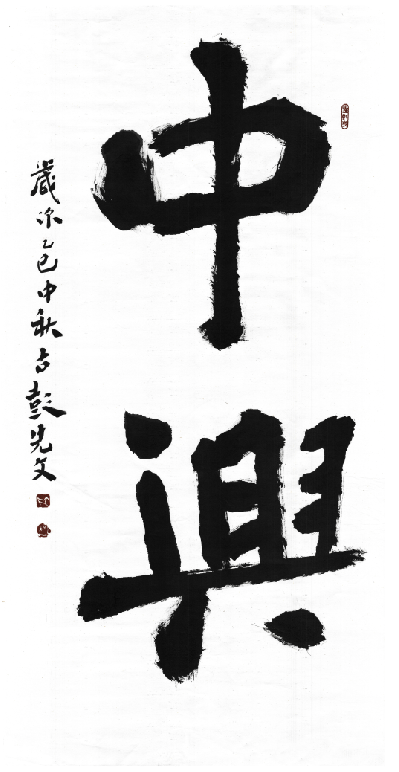 中興
歲次乙巳中秋古彭先文